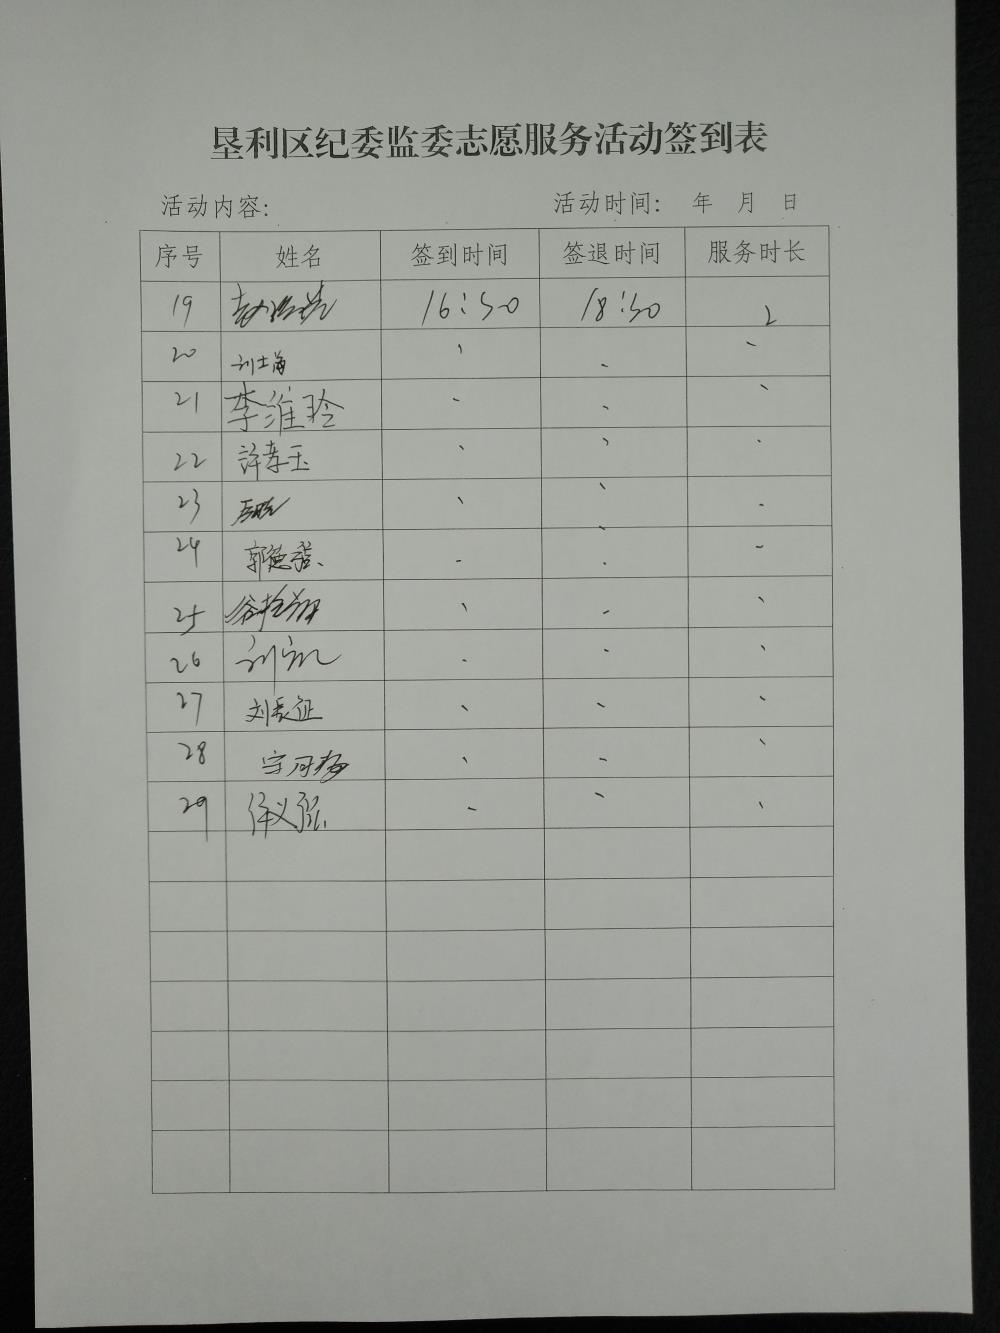 垦利区纪委监委志愿服务活动签到表
活动内容: 活动时间: 年 月 日
序号 姓名 签到时间 签退时间 服务时长
19 16:30 18:30 2
20 刘士海 、 - -
21 李维玲 - - 、
22 許孝玉 、 、 -
23 、 、 -
24 郭德發 - - -
25 、 - 、
26 - - 、
27 刘长征 、 - 、
28 、 - 、
29 - - 、